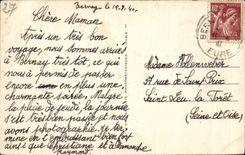 Bernay le 15.9.40
Chère Maman
Après un très bon
voyage, nous sommes arrivés
à Bernay très tôt, ce qui
nous a permis de passer
encore une
charmante soirée. Malgré
la pluie de jeudi, la journée
s'est très bien passée et nous
avons photographié. Je ter-
mine en t'embrassant bien fort
ainsi que Christiane et
Raymond
BERNAY
EURE
Madame Hollenweber
rue de Saint Prix
Saint Leu la Forêt
Seine et Oise